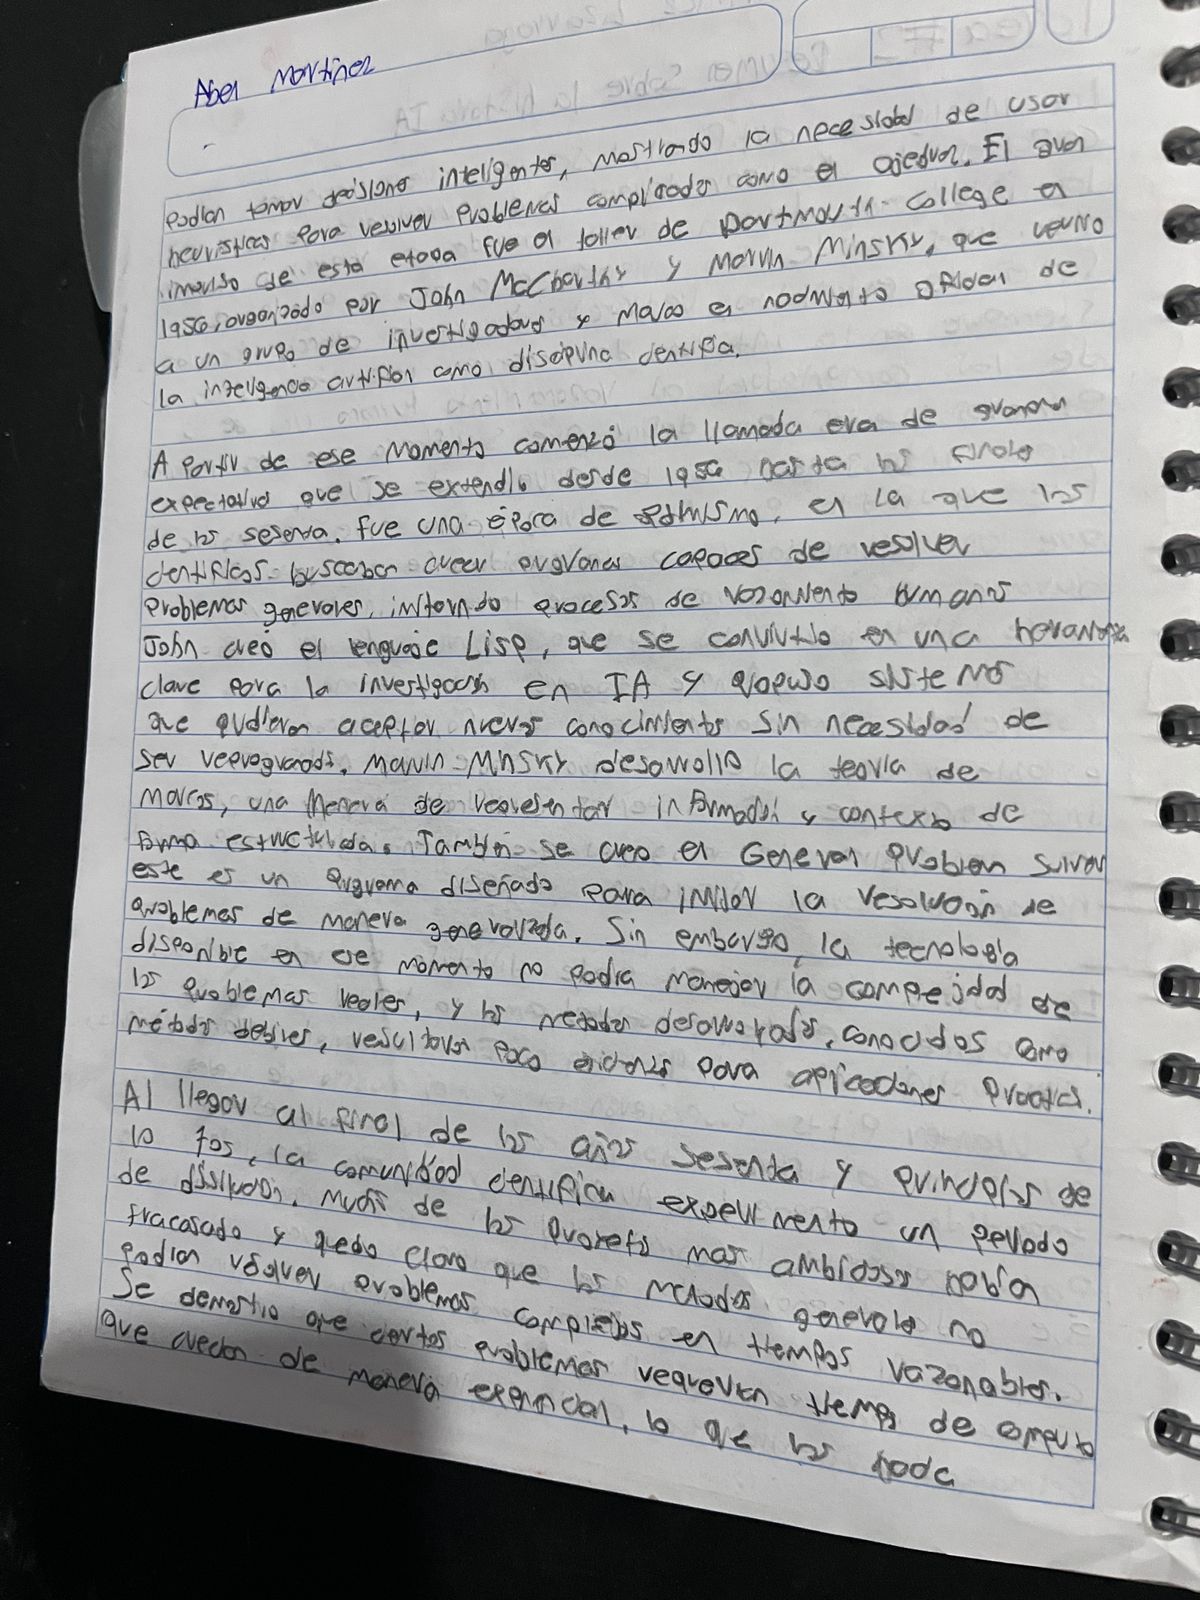 Abel Martinez
podian tomar decisiones inteligentes, mostrando la necesidad de usar
heuristicas para resolver problemas complicados como el ajedrez. El gran
impulso de esta etapa fue el taller de Dartmouth College en
1956, organizado por John McCharthy y Marvin Minsky, que reunio
a un grupo de investigadores y marco el nacimiento oficial de
la inteligencia artificial como disciplina cientifica.
A partir de ese momento comenzó la llamada era de grandes
expectativas que se extendio desde 1956 hasta los finales
de los sesenta. fue una época de optimismo, en la que los
cientificos buscaban crear programas capaces de resolver
problemas generales, imitando procesos de razonamiento humanos
John creó el lenguaje Lisp, que se convirtio en una herramienta
clave para la investigacion en IA y propuso sistemas
que pudieran aceptar nuevos conocimientos sin necesidad de
ser reprogramados. Marvin Minsky desarrollo la teoria de
marcos, una manera de representar informacion y contexto de
forma estructurada. También se creo el General Problem Solver
este es un programa diseñado para imitar la resolución de
problemas de manera generalizada. Sin embargo, la tecnologia
disponible en ese momento no podia manejar la complejidad de
los problemas reales, y los metodos desarrollados, conocidos como
métodos debiles, resultaron poco eficientes para aplicaciones practicas.
Al llegar al final de los años sesenta y principios de
lo 70s, la comunidad cientifica experimento un periodo
de desilucion. muchos de los proyectos mas ambiciosos habian
fracasado y quedo claro que los metodos generales no
podian resolver problemas complejos en tiempos razonables.
Se demostro que ciertos problemas requerian tiempos de computo
que crecian de manera exponencial, lo que los hacia